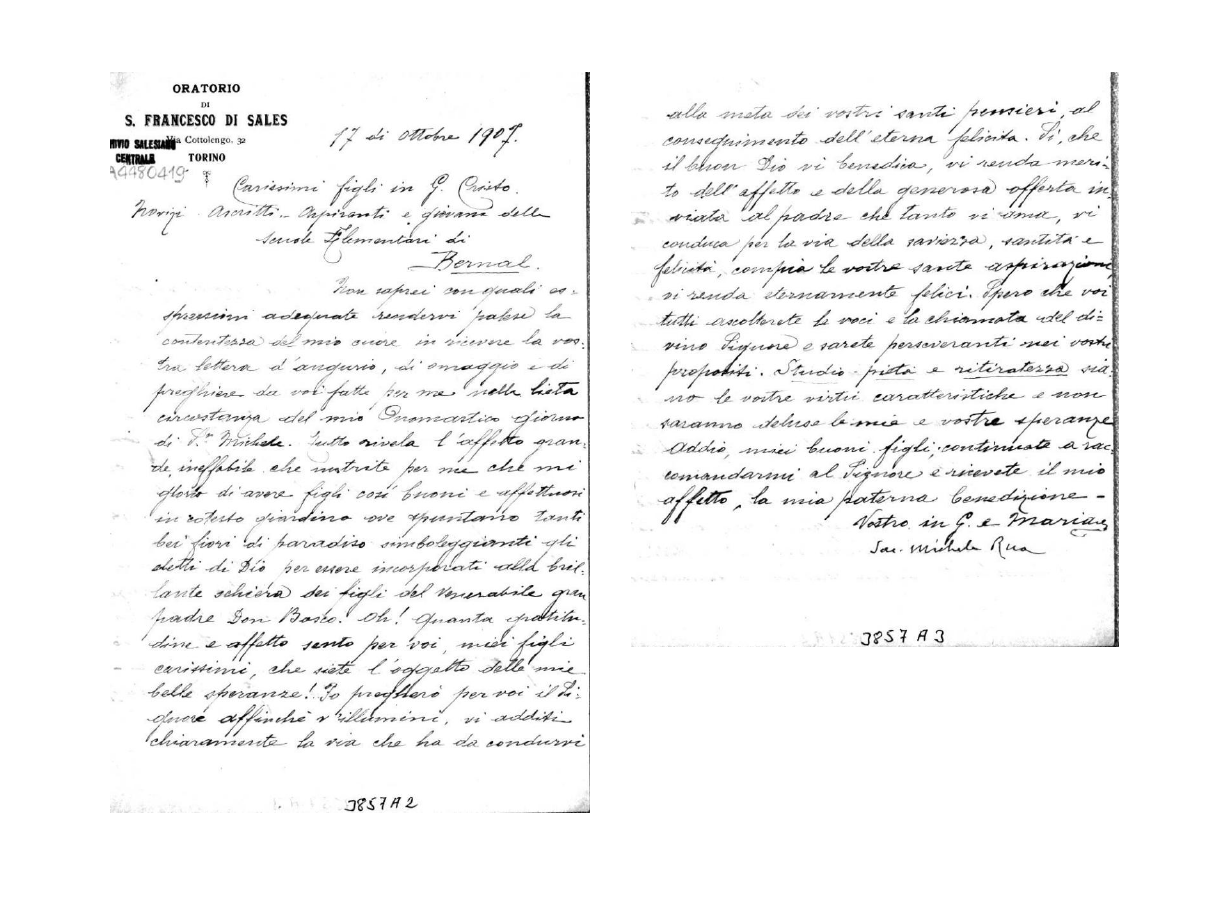 ORATORIO
DI
S. FRANCESCO DI SALES
Via Cottolengo, 32
TORINO
ARCHIVIO SALESIANO
CENTRALE
A4480419
17 di Ottobre 1907.
Carissimi figli in G. Cristo.
Novizi - Ascritti - Aspiranti e giovani delle
scuole Elementari di
Bernal.
Non saprei con quali es-
pressioni adeguate rendervi palese la
contentezza del mio cuore in ricevere la vos-
tra lettera d'augurio, di omaggio e di
preghiere da voi fatte per me nella lieta
circostanza del mio Onomastico giorno
di S. Michele. Tutto rivela l'affetto gran-
de, ineffabile che nutrite per me che mi
glorio di avere figli così buoni e affettuosi
in cotesto giardino ove spuntano tanti
bei fiori di paradiso simboleggianti gli
eletti di Dio per essere incorporati alla bril-
lante schiera dei figli del Venerabile gran
padre Don Bosco! Oh! Quanta gratitu-
dine e affetto sento per voi, miei figli
carissimi, che siete l'oggetto delle mie
belle speranze! Io pregherò per voi il Si-
gnore affinchè v'illumini, vi additi
chiaramente la via che ha da condurvi
3857 A 2
alla meta dei vostri santi pensieri, al
conseguimento dell'eterna felicita. Si, che
il buon Dio vi benedica, vi renda meri-
to dell'affetto e della generosa offerta in-
viata al padre che tanto vi ama, vi
conduca per la via della saviezza, santità e
felicità, compia le vostre sante aspirazioni,
vi renda eternamente felici. Spero che voi
tutti ascolterete le voci e la chiamata del di-
vino Signore e sarete perseveranti nei vostri
propositi. Studio - pietà e ritiratezza sia-
no le vostre virtù caratteristiche e non
saranno deluse le mie e vostre speranze
Addio, miei buoni figli, continuate a rac-
comandarmi al Signore e ricevete il mio
affetto, la mia paterna benedizione -
Vostro in G. e Maria
Sac. Michele Rua
3857 A 3